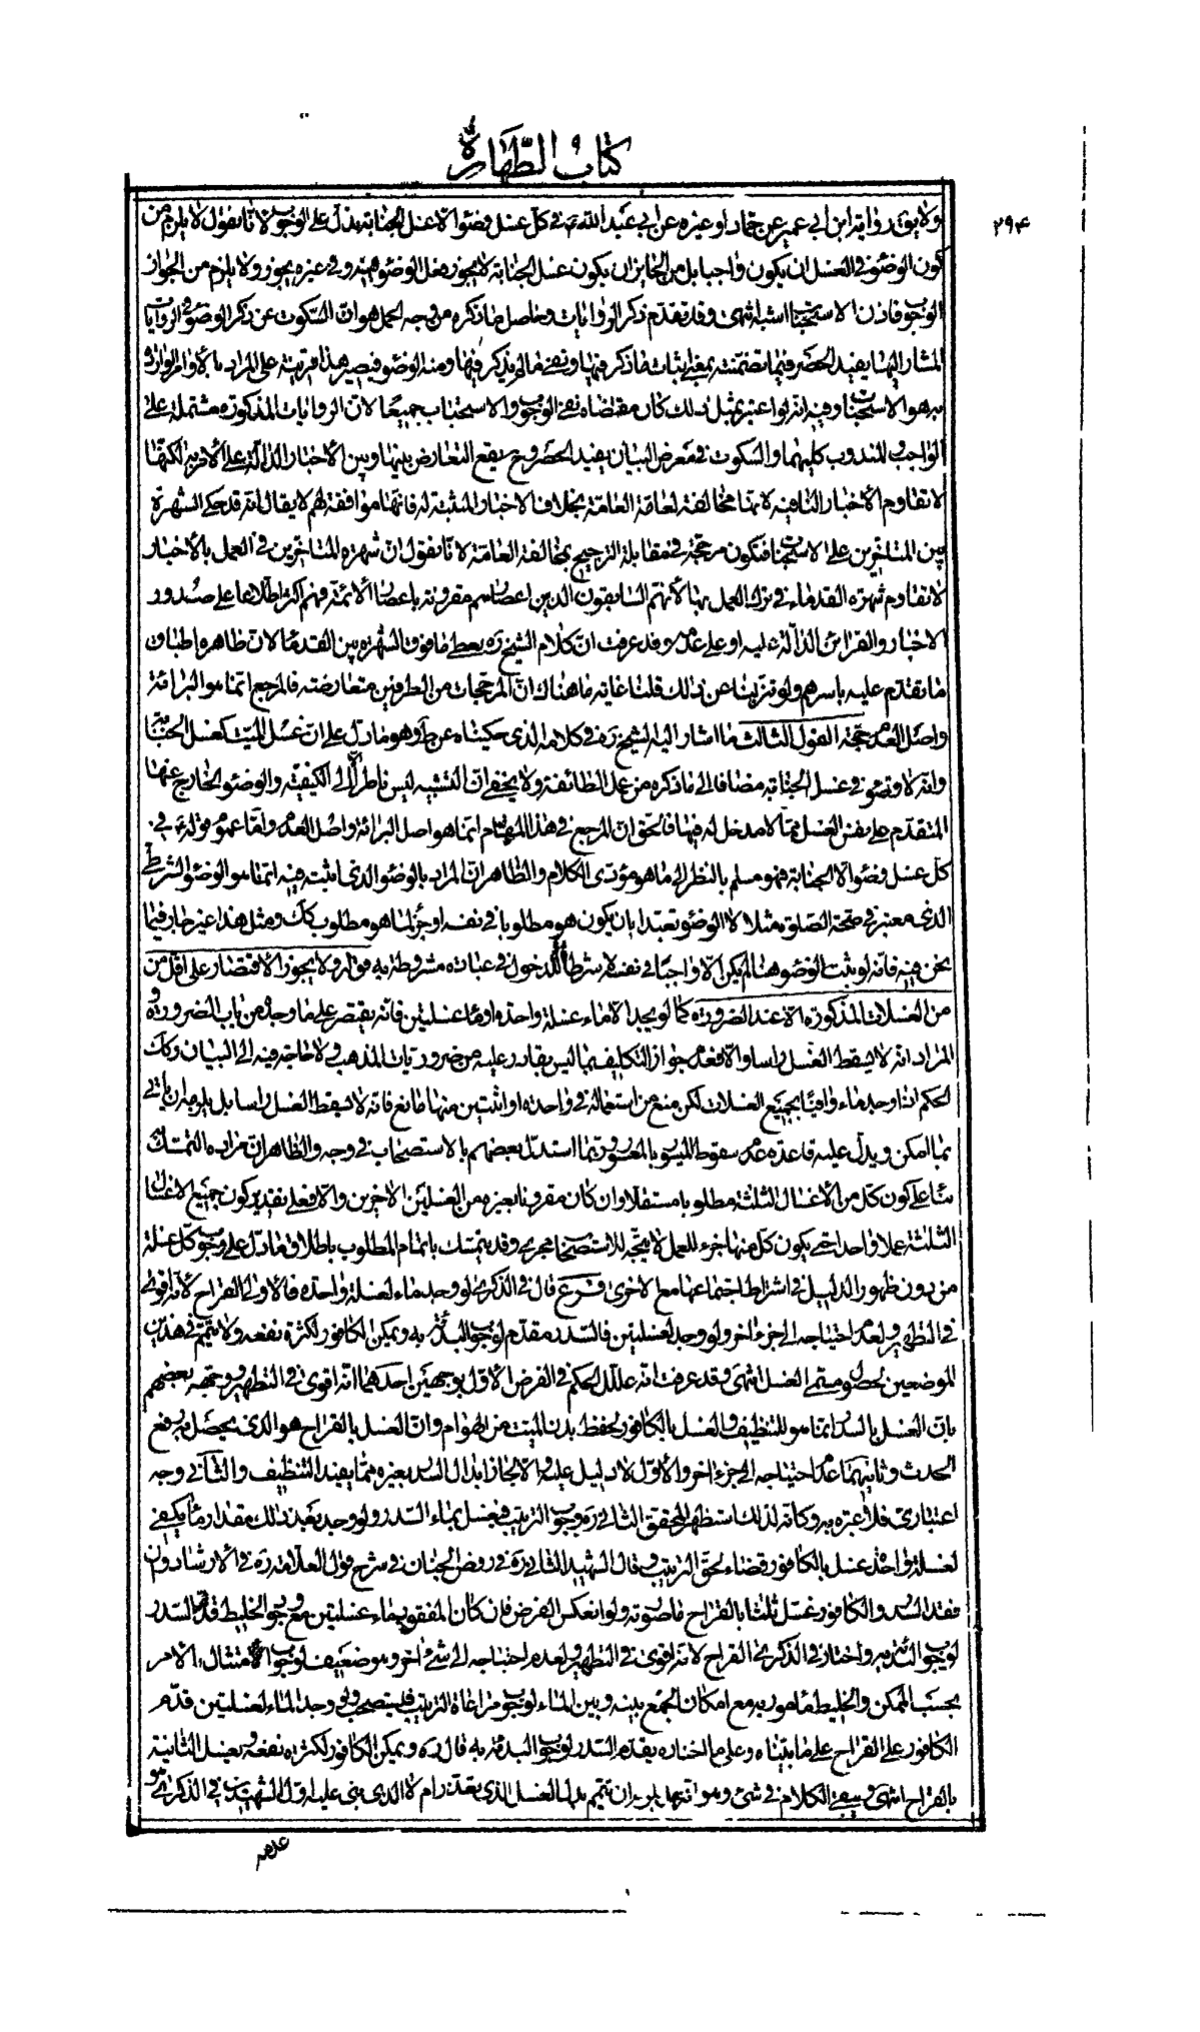 كتاب الطهارة
٢٩٤
ولا يق رواية ابن ابي عمير عن حماد او غيره عن ابي عبد الله ع في كل غسل وضوء الا غسل الجنابة يدل على الوجوب لانا نقول لا يلزم من
كون الوضوء في الغسل ان يكون واجبا بل من الجايز ان يكون غسل الجنابة لا يجوز فعل الوضوء فيه وفي غيره يجوز ولا يلزم من الجواز
الوجوب فاذن الاستحباب اشبه انتهى وقد تقدم ذكر الروايات وحاصل ما ذكره من وجه الحمل هو ان السكوت عن ذكر الوضوء في الروايات
المشار اليها يفيد الحصر فيما تضمنته بمعنى اثبات ما ذكر فيها ونفى ما لم يذكر فيها ومنه الوضوء فيصير هذا قرينة على المراد بالأوامر الواردة
به هو الاستحباب وفيه انه لو اعتبر بمثل ذلك كان مقتضاه نفى الوجوب والاستحباب جميعا لان الروايات المذكورة مشتملة على
الواجب والمندوب كليهما والسكوت في معرض البيان يفيد الحصر وح يقع التعارض بينها وبين الأخبار الدالة على الأمر به لكنها
لا تقاوم الأخبار النافية لانها مخالفة لعامة العامة بخلاف الاخبار المثبتة له فانها موافقة لهم لا يقال انه قد حكى الشهرة
بين المتأخرين على الاستحباب فتكون مرجحة في مقابلة الترجيح بمخالفة العامة لانا نقول ان شهرة المتأخرين في العمل بالأخبار
لا تقاوم شهرة القدماء في ترك العمل بها لأنهم السابقون الذين اعصارهم مقرونة باعصار الأئمة فهم اكثر اطلاعا على صدور
الاخبار والقرائن الدالة عليه او على عدمه وقد عرفت ان كلام الشيخ ره يعطى ما فوق الشهرة بين القدماء لان ظاهره اطباق
ما تقدم عليه باسرهم ولو تنزلنا عن ذلك قلنا غاية ما هناك ان المرجحات من الطرفين متعارضة فالمرجع انما هو البرائة
واصل العدم حجة القول الثالث ما اشار اليه الشيخ ره في كلامه الذي حكيناه عن ط وهو ما دل على ان غسل الميت كغسل الجنابة
وانه لا وضوء في غسل الجنابة مضافا الى ما ذكره من عمل الطائفة ولا يخفى ان التشبيه ليس ناظرا الا الى الكيفية والوضوء الخارج عنها
المتقدم على نفس الغسل مما لا مدخل له فيها فالحق ان المرجع في هذا المقام انما هو اصل البرائة واصل العدم واما عموم قوله ع في
كل غسل وضوء الا الجنابة فهو مسلم بالنظر الى ما هو مؤدى الكلام والظاهر ان المراد بالوضوء الذي اثبت فيه انما هو الوضوء الشرطي
الذي معتبر في صحة الصلوة مثلا لا الوضوء تعبدا بان يكون هو مطلوبا في نفسه او جزء لما هو مطلوب كك ومثل هذا غير جار فيما
نحن فيه فانه لو ثبت الوضوء هنا لم يكن الا واجبا في نفسه لا شرطا للدخول في عبادة مشروطة به قوله ولا يجوز الاقتصار على اقل من
من الغسلات المذكورة الا عند الضرورة كما لو لم يجد الا ماء غسلة واحدة او ماء غسلتين فانه يقتصر على ما وجد من باب الضرورة و
المراد انه لا يسقط الغسل راسا والا فعدم جواز التكليف بما ليس بقادر عليه من ضروريات المذهب ولا حاجة فيه الى البيان وكك
الحكم اذا وجد ماء وافيا بجميع الغسلات لكن منع من استعماله في واحدة او اثنتين منها مانع فانه لا يسقط الغسل راسا بل يلزم ان ياتي
بما امكن ويدل عليه قاعدة عدم سقوط الميسور بالمعسور وربما استدل بعضهم بالاستصحاب في وجه والظاهر ان مراده التمسك
بناء على كون كل من الأغسال الثلثة مطلوبا مستقلا وان كان مقرونا بغيره من الغسلين الاخرين والا فعلى تقدير كون جميع الاغسال
الثلثة عملا واحدا حتى يكون كل منها جزء للعمل لا يتجه للاستصحاب مجرى وقد يتمسك باتمام المطلوب باطلاق ما دل على وجوب كل غسلة
من دون ظهور الدليل في اشتراط اجتماعها مع الاخرى فرع قال في الذكرى لو وجد ماء لغسلة واحدة فالأولى القراح لأنه اقوى
في التطهير ولعدم احتياجه الى جزء اخر ولو وجد لغسلتين فالسدر مقدم لوجوب البدئة به ويمكن الكافور لكثرة نفعه ولا يتمم في هذين
الموضعين لحصول مسمى الغسل انتهى وقد عرفت انه علل الحكم في الفرض الأول بوجهين احدهما انه اقوى في التطهير ووجهه بعضهم
بان الغسل بالسدر انما هو للتنظيف والغسل بالكافور لحفظ بدن الميت من الهوام وان الغسل بالقراح هو الذي يحصل به رفع
الحدث وثانيهما عدم احتياجه الى جزء اخر والأول لا دليل عليه والا لجاز ابدال السدر بغيره مما يفيد التنظيف والثاني وجه
اعتباري فلا عبرة به وكانه لذلك استظهر المحقق الثاني ره وجوب الترتيب فيغسل بماء السدر ولو وجد بعد ذلك مقدار ما يكفى
لغسلة واحدة غسل بالكافور قضاء لحق الترتيب وقال الشهيد الثاني ره في روض الجنان في شرح قول العلامة ره في الارشاد ولو
فقد السدر والكافور غسل ثلثا بالقراح ما صورته ولو انعكس الفرض فان كان المفقود ماء غسلتين مع وجود الخليط قدم السدر
لوجوب البدئة به واختار في الذكرى القراح لانه اقوى في التطهير ولعدم احتياجه الى شيء اخر وهو ضعيف لوجوب الأمتثال الامر
بحسب الممكن والخليط مأمور به مع امكان الجمع بينه وبين الماء لوجوب مراعاة الترتيب فيستصحب ولو وجد الماء لغسلتين قدم
الكافور على القراح على ما بيناه وعلى ما اختاره يقدم السدر لوجوب البدئة به قال ره ويمكن الكافور لكثرة نفعه ويغسل الثانية
بالقراح انتهى وبقى الكلام في شيء وهو انه هل يلزم ان يتمم بدل الغسل الذي تعذر ام لا الذي بنى عليه اول الشهيدين في الذكرى هو
عدمه